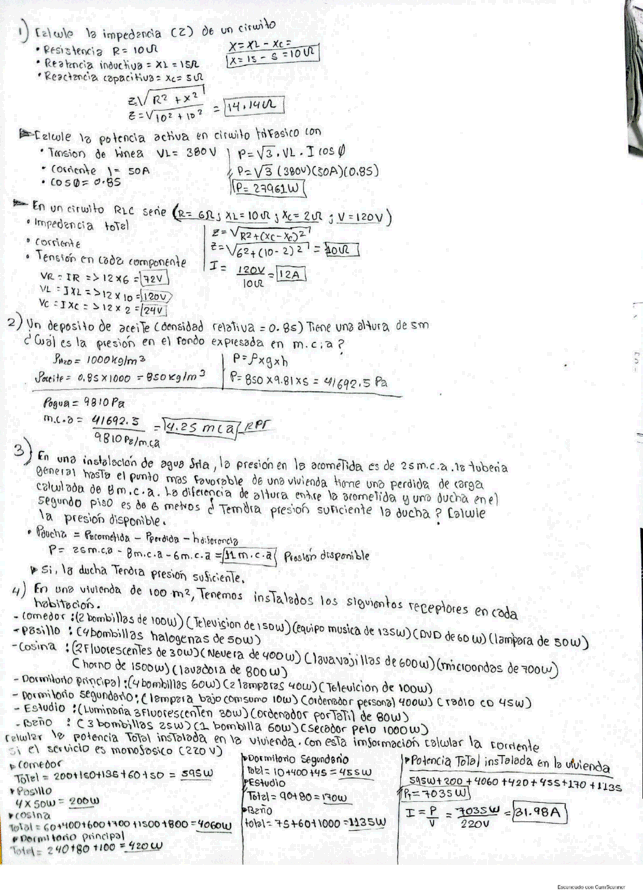 1) Calcule la impedancia (Z) de un circuito
• Resistencia R = 10Ω
• Reatencia inductiva = XL = 15Ω
• Reactancia capacitiva = Xc = 5Ω
X = XL - Xc =
X = 15 - 5 = 10Ω
Z√R² + X²
Z = √10² + 10² = 14.14Ω
Calcule la potencia activa en circuito trifasico con
• Tension de linea VL = 380V
• Corriente I = 50A
• COSØ = 0.85
P = √3 . VL . I cosØ
P = √3 (380V)(50A)(0.85)
P = 27961W
En un circuito RLC serie (R = 6Ω; XL = 10Ω; Xc = 2Ω; V = 120V)
• Impedancia total
• Corriente
• Tensión en cada componente
Z = √R² + (XC - XC)²
Z = √6² + (10 - 2)² = 10Ω
I = 120V / 10Ω = 12A
VR = IR => 12 x 6 = 72V
VL = IXL => 12 x 10 = 120V
VC = IXC => 12 x 2 = 24V
2) Un deposito de aceite (densidad relativa = 0.85) Tiene una altura de 5m
¿Cual es la presión en el fondo expresada en m.c.a?
= 1000kg/m³
ρaceite = 0.85 x 1000 = 850kg/m³
P = ρ x g x h
P = 850 x 9.81 x 5 = 41692.5 Pa
Pagua = 9810 Pa
m.c.a = 41692.5 / 9810 Pa/m.ca = 4.25 mca
3) En una instalación de agua fria, la presión en la acometida es de 25m.c.a. la tuberia
general hasta el punto mas favorable de una vivienda tiene una perdida de carga
calculada de 8 m.c.a. La diferencia de altura entre la acometida y una ducha en el
segundo piso es de 6 metros ¿ Tendra presión suficiente la ducha? Calcule
la presion disponible.
• Pducha = Pacometida - Pperdida -
P = 25m.c.a - 8m.c.a - 6m.c.a = 11 m.c.a Presión disponible
Si, la ducha Tendra presión suficiente.
4) En una vivienda de 100 m², Tenemos instalados los siguientes receptores en cada
habitacion.
- Comedor : (2 bombillas de 100W) (Television de 150W) (equipo musica de 135W) (DVD de 60W) (lampara de 50W)
- Pasillo : (4 bombillas halogenas de 50W)
- Cosina : (2 Fluorescentes de 30W) (Nevera de 400W) (lavavajillas de 600W) (microondas de 700W)
(horno de 1500W) (lavadora de 800W)
- Dormitorio principal : (4 bombillas 60W) (2 lamparas 40W) (Television de 100W)
- Dormitorio segundario : (lampara bajo consumo 10W) (Ordenador personal 400W) (radio CD 45W)
- Estudio : (Luminaria 3 fluorescenten 30W) (Ordenador portatil de 80W)
- Baño : (3 bombillas 25W) (1 bombilla 60W) (Secador pelo 1000W)
Calcular la potencia Total instalada en la vivienda. con esta imformación calular la corriente
Si el servicio es monofasico (220V)
Comedor
Total = 200+150+135+60+50 = 595W
Pasillo
4 x 50W = 200W
Cosina
Total = 60+400+600+700+1500+800 = 4060W
Dormitorio principal
Total = 240+80+100 = 420W
Dormitorio Segundario
Total = 10+400+45 = 455W
Estudio
Total = 90+80 = 170W
Baño
total = 75+60+1000 = 1135W
Potencia Total instalada en la vivienda
595W+200+4060+420+455+170+1135
Pt = 7035W
I = P / V = 7035W / 220V = 31.98A
Escaneado con CamScanner